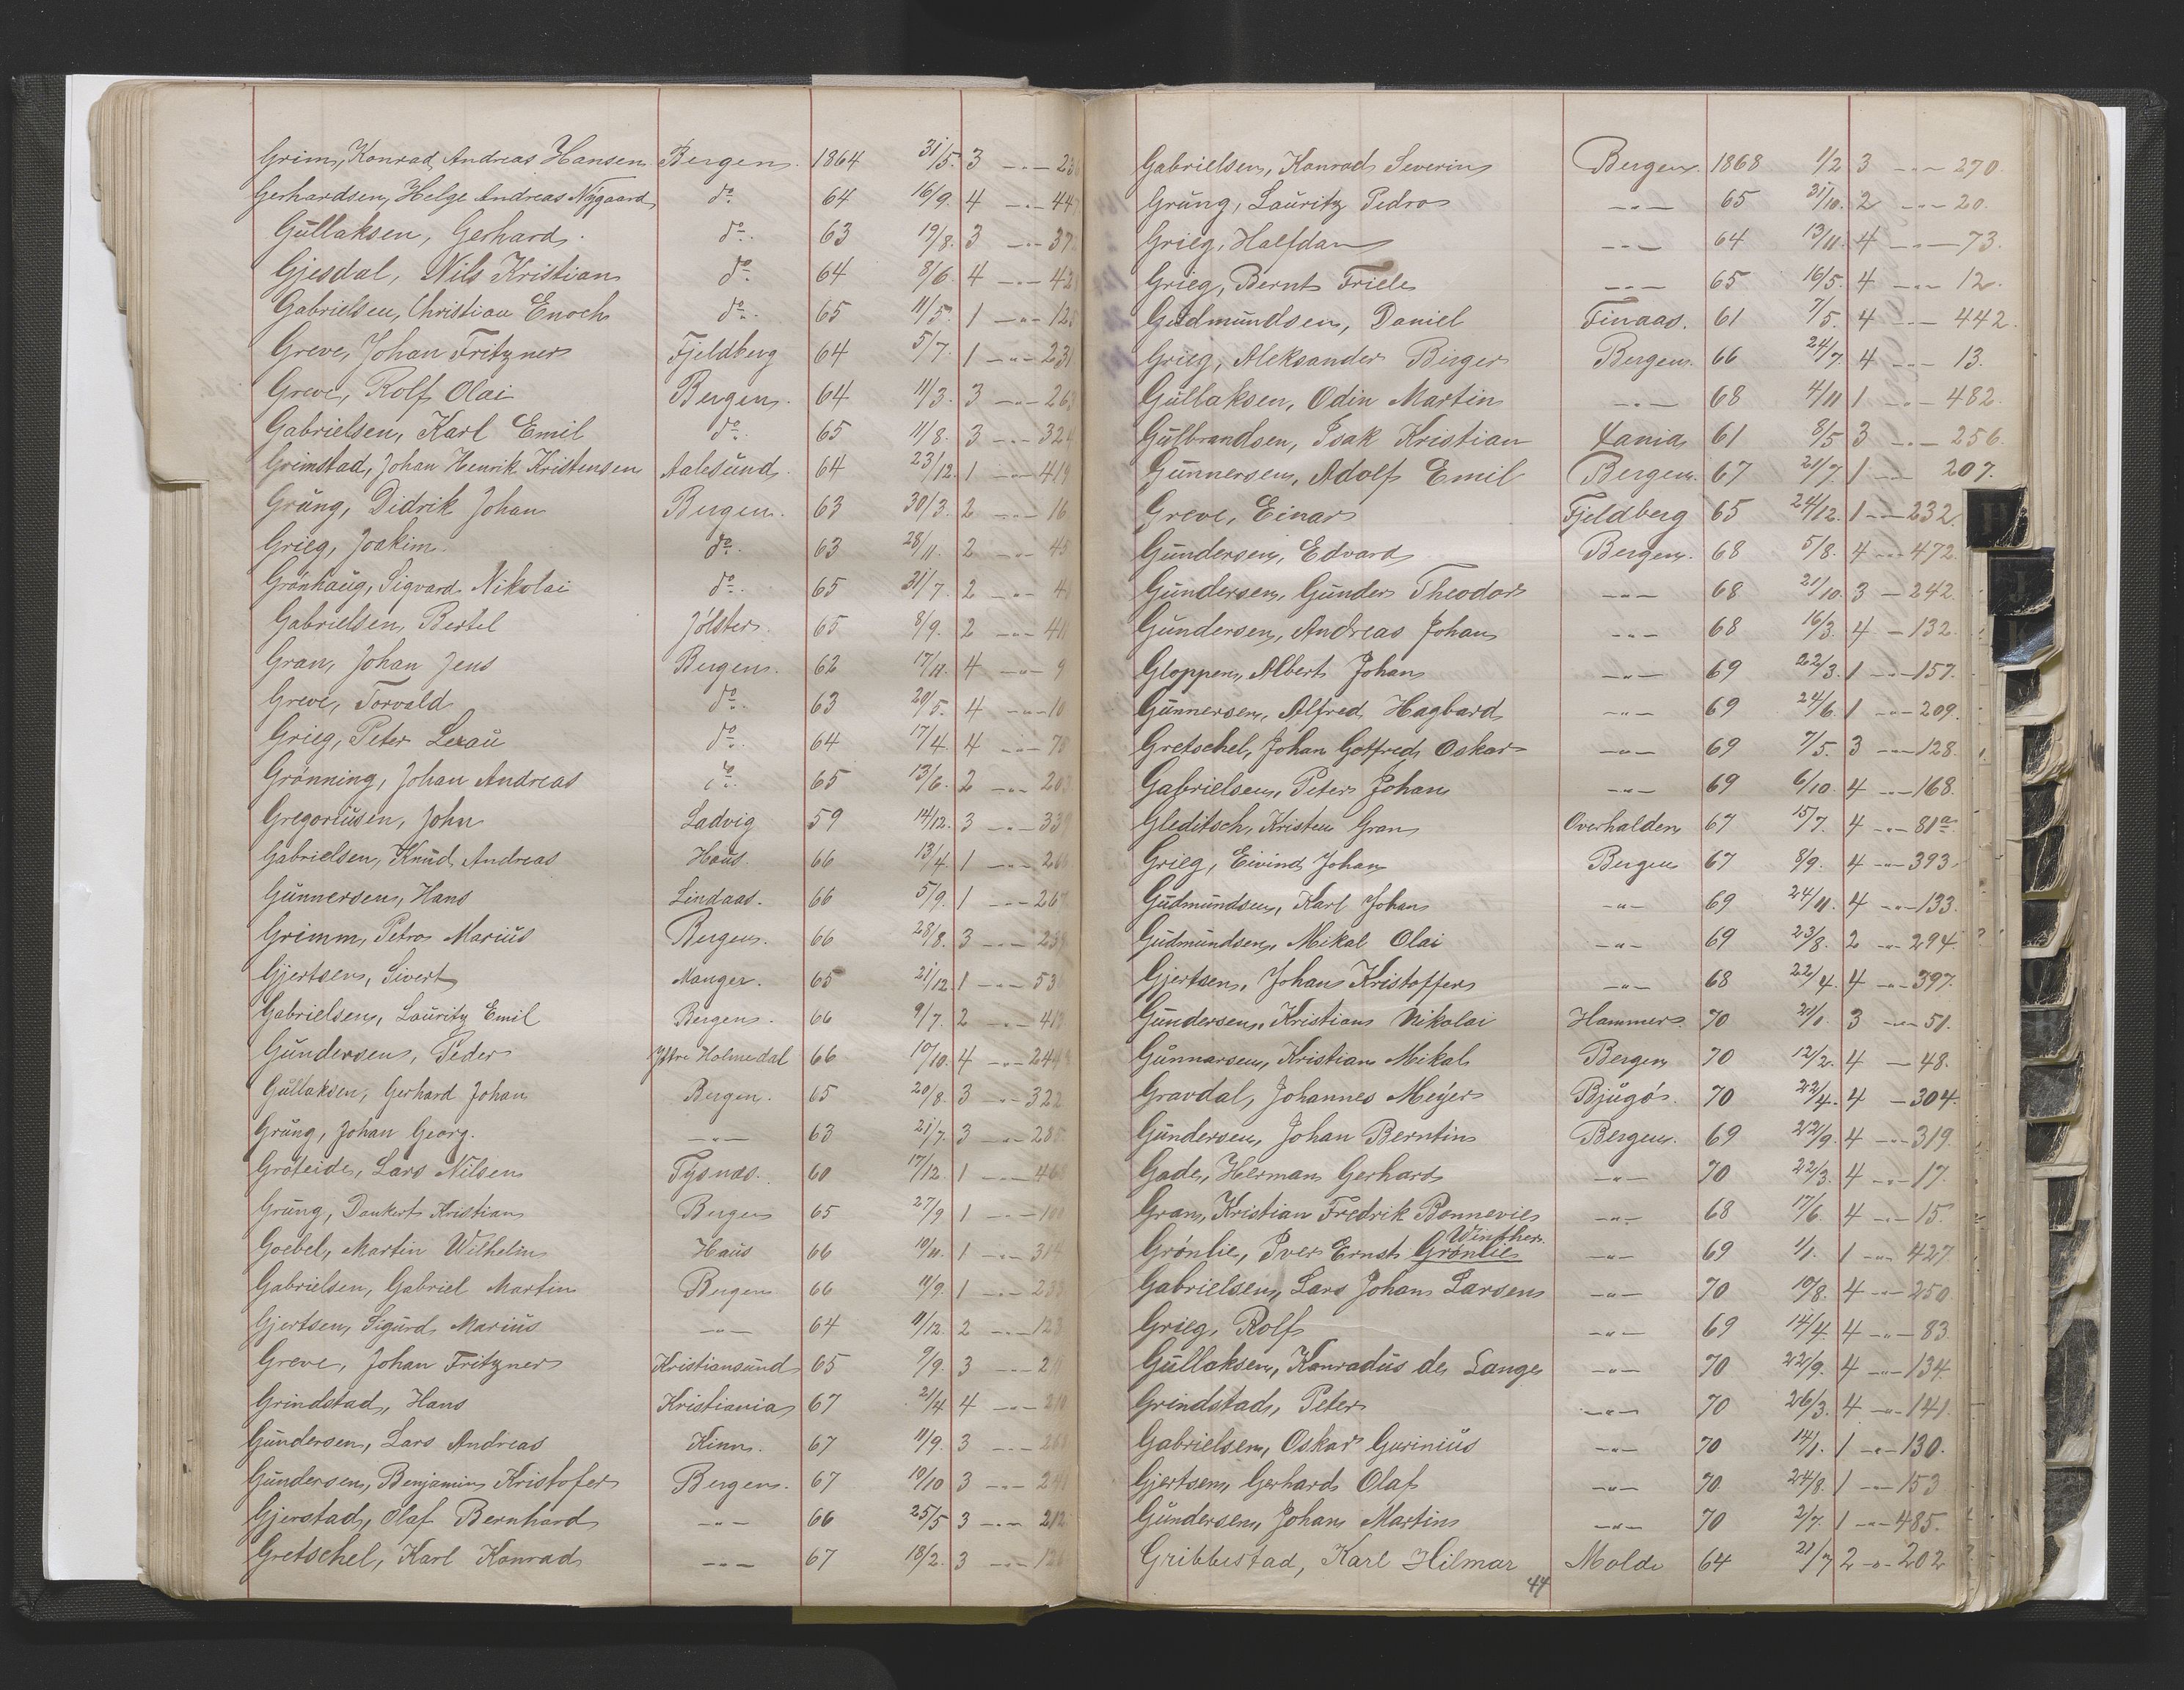 Grim, Konrad Andreas Hansen Bergen. 1864 31/5. 3 -"- 23
Gerhardsen, Helge Andreas Nygaard do 64 16/9. 4 -"- 44
Gullaksen, Gerhard. do 63 19/8. 3 -"- 37
Gjesdal, Nils Kristian do 64 8/6. 4 -"- 42
Gabrielsen, Christian Enoch do 65 11/5. 1 -"- 12
Greve, Johan Fritzner Fjeldberg 64 5/7. 1 -"- 231
Greve, Rolf Olai Bergen. 64 11/3. 3 -"- 26
Gabrielsen, Karl Emil do 65 11/8. 3 -"- 32
Grimstad, Johan Henrik Kristensen Aalesund. 64 23/12. 1 -"- 419
Grung, Didrik Johan Bergen. 63 30/3. 2 -"- 16
Grieg, Joakim. do 63 28/11. 2 -"- 45
Grönhaug, Sigvard Nikolai do 65 31/7. 2 -"- 4
Gabrielsen, Bertel Jölster. 65 8/9. 2 -"- 41
Gran, Johan Jens Bergen. 62 17/11. 4 -"- 9
Greve, Torvald do 63 20/5. 4 -"- 10
Grieg, Peter Lexau do 64 17/4. 4 -"- 7
Grönning, Johan Andreas do 65 13/6. 2 -"- 20
Gregoriusen, John Ladvig 59 14/12. 3 -"- 33
Gabrielsen, Knud Andreas Haus. 66 13/4. 1 -"- 26
Gunnersen, Hans Lindaas. 66 5/9. 1 -"- 267
Grimm, Petro Marius Bergen. 66 28/8. 3 -"- 23
Gjertsen, Sivert Manger. 65 21/12. 1 -"- 53
Gabrielsen, Lauritz Emil Bergen. 66 9/7. 2 -"- 41
Gundersen, Peder Ytre Holmedal 66 10/10. 4 -"- 244
Gullaksen, Gerhard Johan Bergen. 65 20/8. 3 -"- 322
Grung, Johan Georg. -"- 63 21/7. 3 -"- 285
Gröteide, Lars Nilsen Tysnæs. 60 17/12. 1 -"- 46
Grung, Dankert Kristian Bergen 65 27/9 1 -"- 10
Goebel, Martin Wilhelm Haus 66 10/11. 1 -"- 314
Gabrielsen, Gabriel Martin Bergen 66 11/9. 1 -"- 23
Gjertsen, Sigurd Marius -"- 64 11/12. 2 -"- 123
Greve, Johan Fritzner Kristiansund 65 9/9. 3 -"- 2
Grindstad, Hans Kristiania 67 21/4 4 -"- 210
Gundersen, Lars Andreas Kinn. 67 11/9. 3 -"- 26
Gundersen, Benjamin Kristofer Bergen. 67 10/10 3 -"- 241
Gjerstad, Olaf Bernhard -"- 66 25/5 3 -"- 212
Gretschel, Karl Konrad -"- 67 18/2. 3 -"- 12
Gabrielsen, Konrad Severin Bergen. 1868 1/2 3 -"- 270.
Grung, Lauritz Pedro -"- 65 31/10. 2 -"- 20.
Grieg, Halfdan -"- 64 13/11. 4 -"- 73.
Grieg, Bernt Friele -"- 65 16/5. 4 -"- 12.
Gudmundsen, Daniel Finaas. 61 7/5. 4 -"- 442.
Grieg, Aleksander Birger Bergen. 66 24/7. 4 -"- 13.
Gullaksen, Odin Martin -"- 68 4/11 1 -"- 482.
Gulbrandsen, Isak Kristian Xania 61 8/5 3 -"- 256.
Gunnersen, Adolf Emil Bergen. 67 21/7. 1 -"- 207.
Greve, Einar Fjeldberg 65 24/12. 1 -"- 232.
Gundersen, Edvard Bergen. 68 5/8. 4 -"- 472.
Gundersen, Gunder Theodor -"- 68 21/10. 3 - 242.
Gundersen, Andreas Johan -"- 68 16/3. 4 - 132.
Gloppen, Albert Johan -"- 69 22/3. 1 -"- 157.
Gunnersen, Alfred Hagbard -"- 69 24/6. 1 -"- 209.
Gretschel, Johan Gotfred Oskar -"- 69 7/5. 3 -"- 128.
Gabrielsen, Peter Johan -"- 69 6/10. 4 -"- 168.
Gleditsch, Kristen Gran Overhalden 67 15/7. 4 -"- 81a.
Grieg, Eivind Johan Bergen 67 8/9. 4 -"- 393.
Gudmundsen, Karl Johan -"- 69 24/11. 4 -"- 133.
Gudmundsen, Mikal Olai -"- 69 23/8. 2 -"- 294.
Gjertsen, Johan Kristoffer -"- 68 22/4. 4 -"- 397.
Gundersen, Kristian Nikolai Hammer. 70 21/1. 3 -"- 51.
Gunnarsen, Kristian Mikal Bergen 70 12/2. 4 - 48.
Gravdal, Johannes Meyer Bjugö. 70 22/4. 4 - 304.
Gundersen, Johan Berntin Bergen. 69 22/9. 4 -"- 319.
Gade, Herman Gerhard -"- 70 22/3. 4 -"- 17.
Gran, Kristian Fredrik Bonnevie -"- 68 17/6. 4 -"- 15.
Winther.
Grönlie, Iver Ernst Grönlie -"- 69 1/1. 1 -"- 427.
Gabrielsen, Lars Johan Larsen -"- 70 10/8. 4 -"- 250.
Grieg, Rolf -"- 69 14/4. 4 -"- 83.
Gullaksen, Konradus de Lange -"- 70 22/9. 4 -"- 134.
Grindstad, Peter -"- 70 26/3. 4 -"- 141.
Gabrielsen, Oskar Gurinius -"- 70 14/1. 1 -"- 130.
Gjertsen, Gerhard Olaf -"- 70. 24/8. 1 -"- 153
Gundersen, Johan Martin -"- 70 2/7. 1 -"- 485.
Gribbestad, Karl Hilmar Molde 64 21/7 2 -"- 202
44
H
J
K